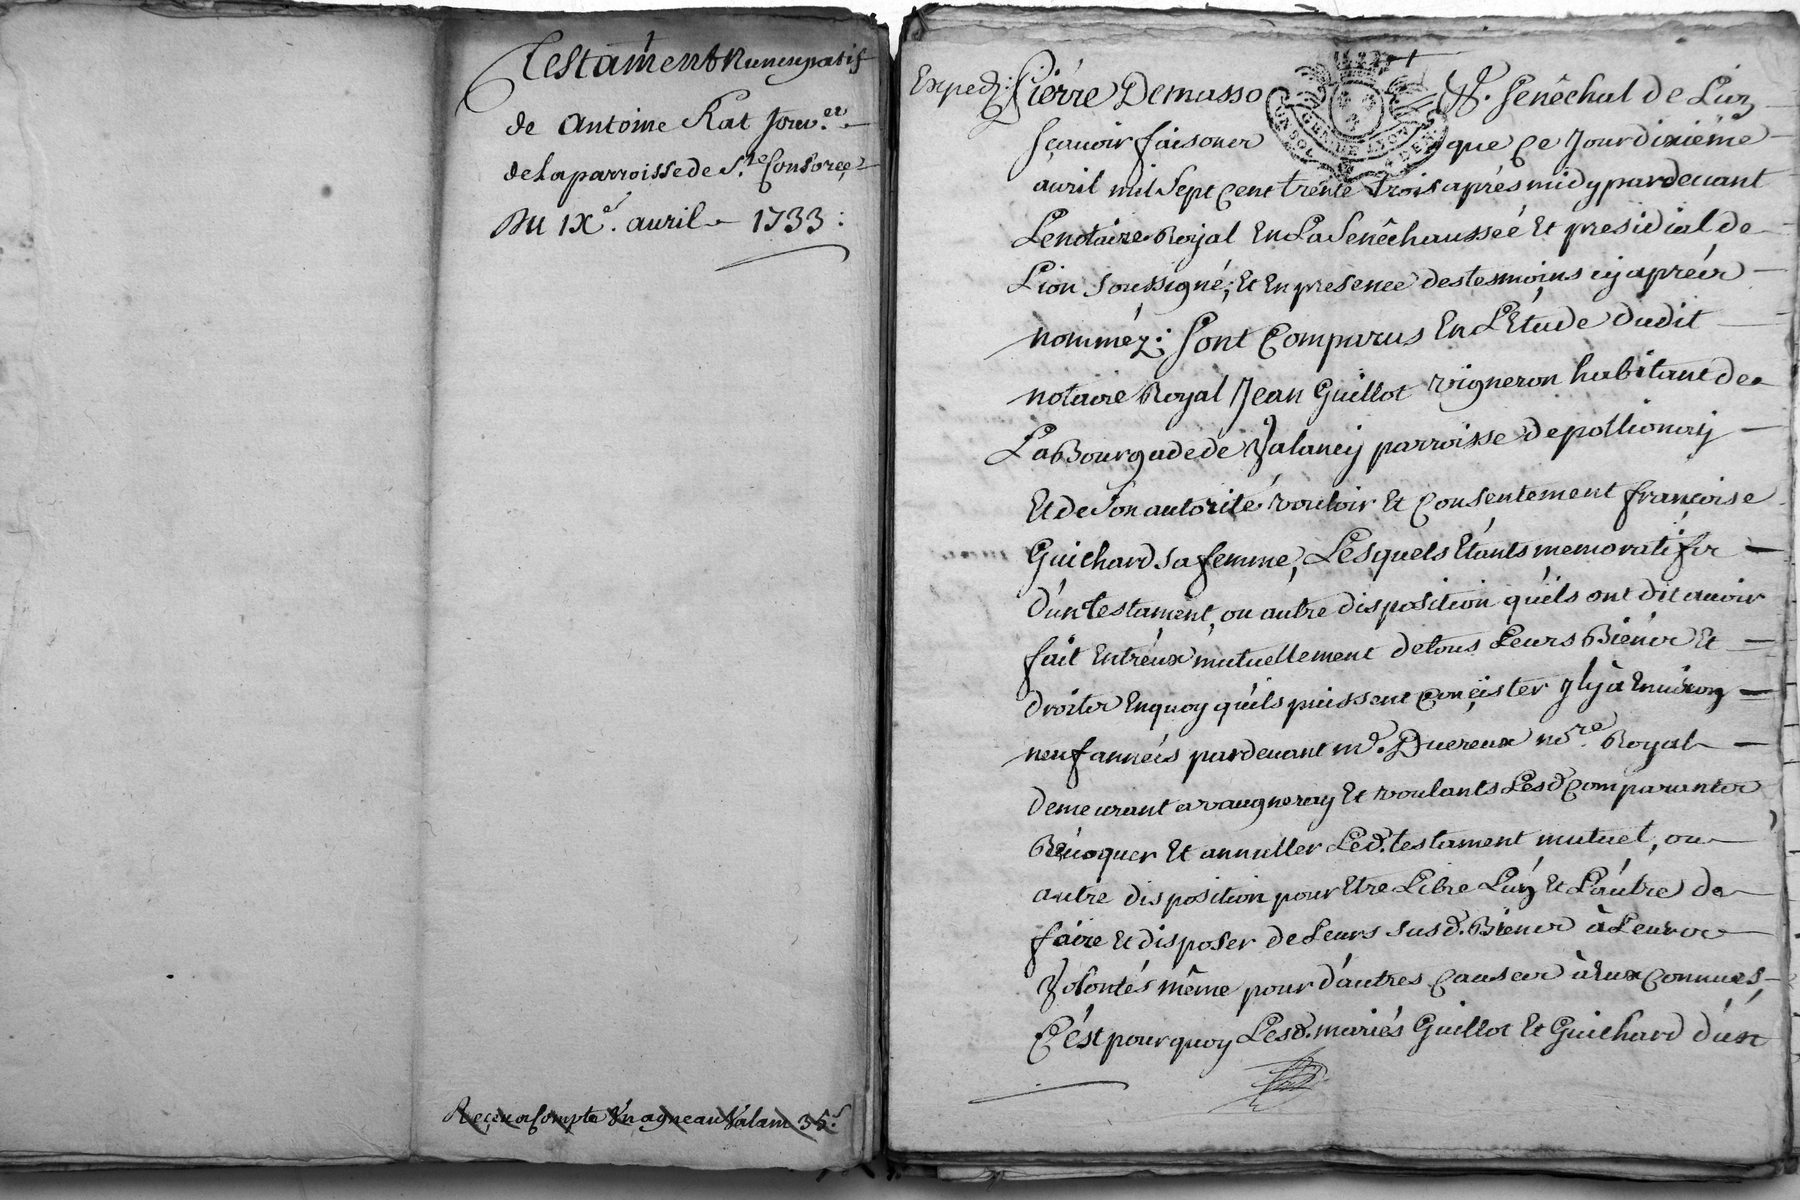 Testament Nuncupatif
de Antoine Rat Jour.er
de la parroisse de S.te Consorce
Du IXe. avril 1733 :
Reçeu a Compte Un agneau Valant 35.s
Exped: Pierre Demasso S.r Senêchal de Lion
sçavoir faisons que Ce Jourd'dixiéme
avril mil Sept Cent trente trois aprés midy pardevant
Le notaire Royal En La Senêchaussée Et presidial de
Lion Soussigné; Et En presence des tesmoins cy aprés
nommez; Sont Comparus En L'Etude dudit
notaire Royal Jean Guillot vigneron habitant de
La Bourgade de Valancy parroisse de pollionay
Et de Son autorité vouloir Et Consentement françoise
Guichard Sa femme, Lesquels Etants memoratifs
d'un testament, ou autre disposition qu'ils ont dit avoir
fait Entr'eux mutuellement de tous Leurs Biéns Et
droits En quoy qu'ils puissent Conçister Jl y à Environ
neuf années pardevant m.e Ducreux no.re Royal
demeurant a vaugneray Et voulants Lesd. Comparants
Révoquer Et annuller Led. testament mutuel, ou
autre disposition pour Etre Libre L'un Et L'autre de
faire Et disposer de Leurs susd. Biens à Leurs
Volontés même pour d'autres Causes à Eux Connues,
C'est pourquoy Lesd. mariés Guillot Et Guichard d'un